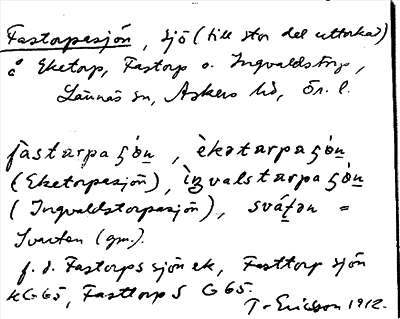 Fastorpasjön, sjö (till stor del uttorkad)
å Eketorp, Fastorp o. Ingvaldstorp,
Lännäs sn, Askers hd, Ör. l.
fàstɑrpaʂö́n, èkətɑrpaʂö́n
(Eketorpasjön), ìŋvalstɑrpaʂö́n
(Ingvaldstorpasjön), sváʈən =
Svarten (gm.).
f. d. Fastorps sjön ek, Fasttorp sjön
kG 65, Fasttorp S G 65.
T. Ericsson 1912.